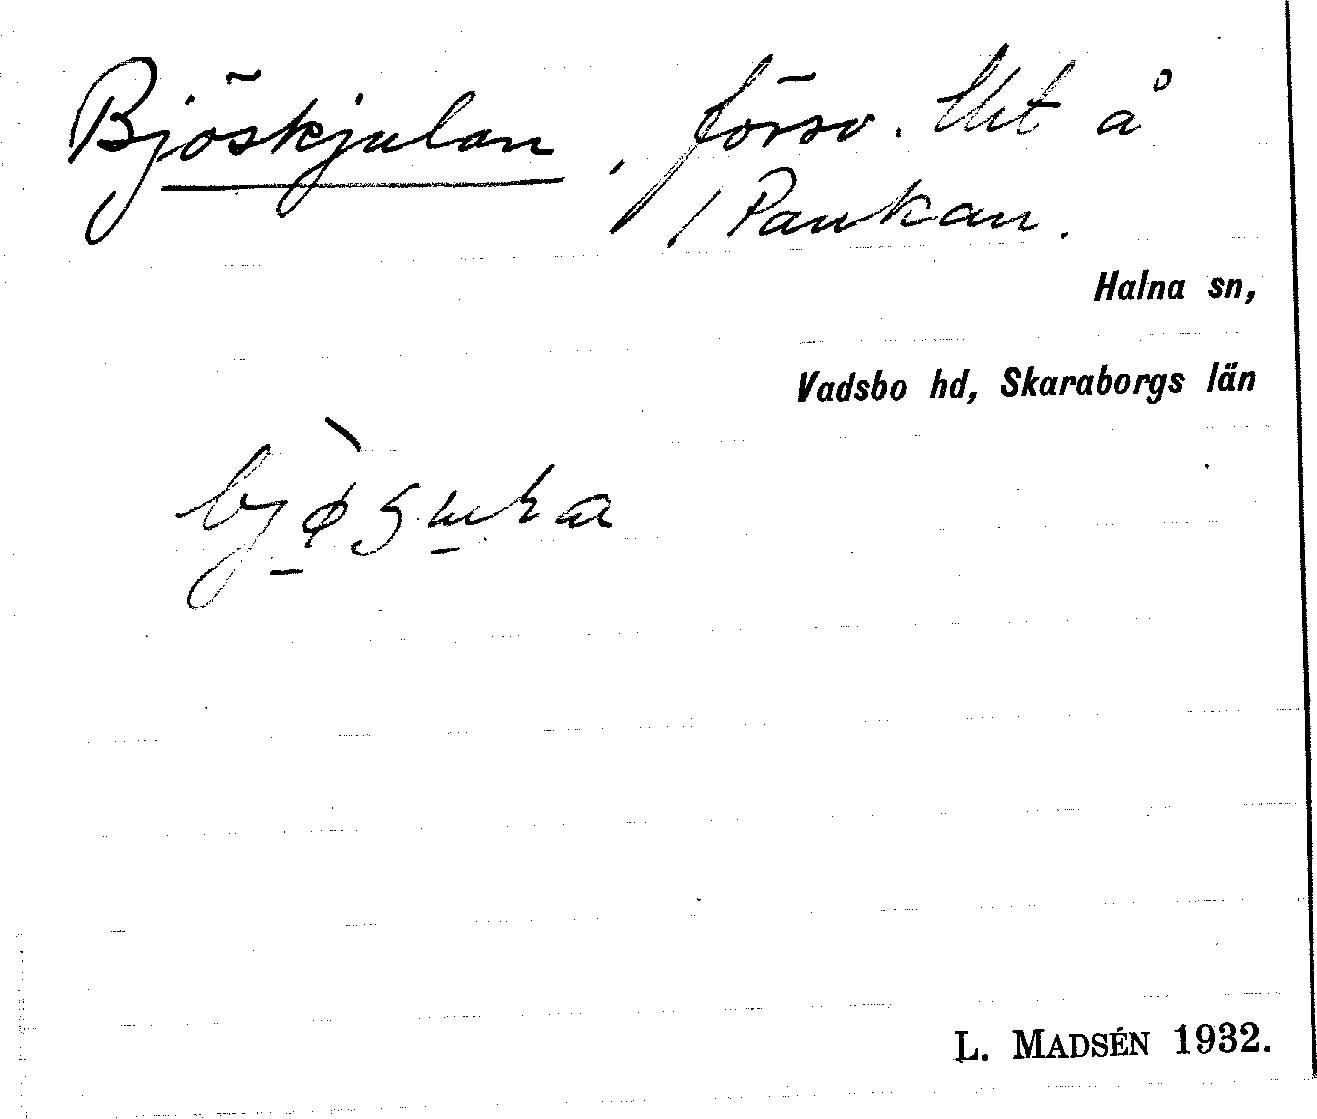 Björkjulan, försv. lht å
/ Pankan.
Halna sn,
Vadsbo hd, Skaraborgs län
L. MADSÉN 1932.